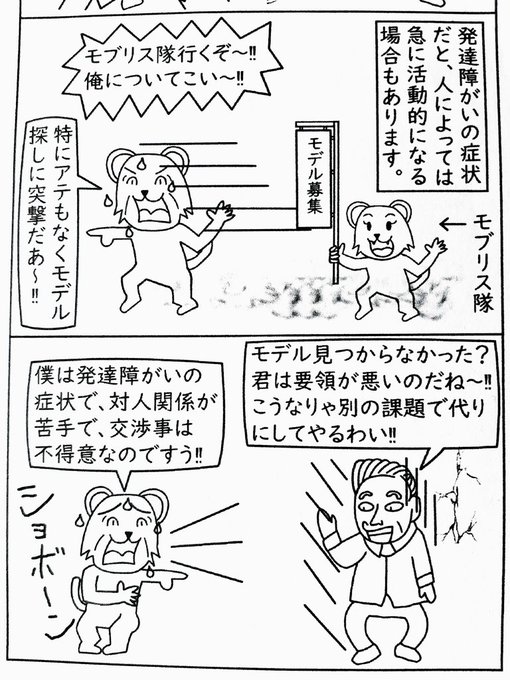 発達障がいの症状
だと、人によっては
急に活動的になる
場合もあります。
モブリス隊行くぞ〜!!
俺についてこい〜!!
モデル募集
←モブリス隊
特にアテもなくモデル
探しに突撃だあ〜!!
モデル見つからなかった?
君は要領が悪いのだね〜!!
こうなりゃ別の課題で代り
にしてやるわい!!
僕は発達障がいの
症状で、対人関係が
苦手で、交渉事は
不得意なのですう!!
ショボーン